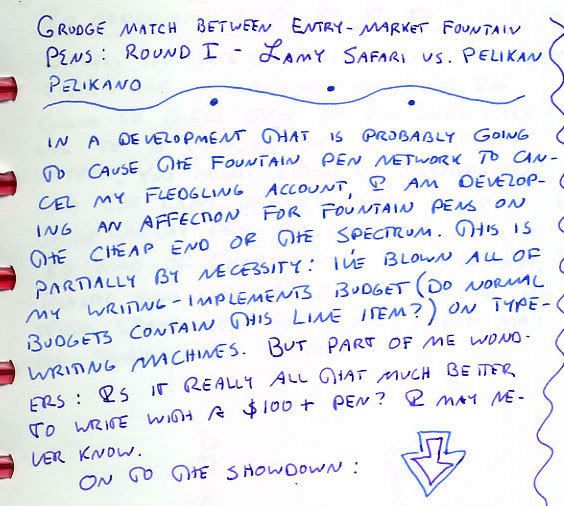 GRUDGE MATCH BETWEEN ENTRY-MARKET FOUNTAIN
PENS: ROUND I - LAMY SAFARI VS. PELIKAN
PELIKANO
IN A DEVELOPMENT THAT IS PROBABLY GOING
TO CAUSE THE FOUNTAIN PEN NETWORK TO CAN-
CEL MY FLEDGLING ACCOUNT, I AM DEVELOP-
ING AN AFFECTION FOR FOUNTAIN PENS ON
THE CHEAP END OF THE SPECTRUM. THIS IS
PARTIALLY BY NECESSITY: I'VE BLOWN ALL OF
MY WRITING-IMPLEMENTS BUDGET (DO NORMAL
BUDGETS CONTAIN THIS LINE ITEM?) ON TYPE-
WRITING MACHINES. BUT PART OF ME WOND-
ERS: IS IT REALLY ALL THAT MUCH BETTER
TO WRITE WITH A $100+ PEN? I MAY NE-
VER KNOW.
ON TO THE SHOWDOWN: